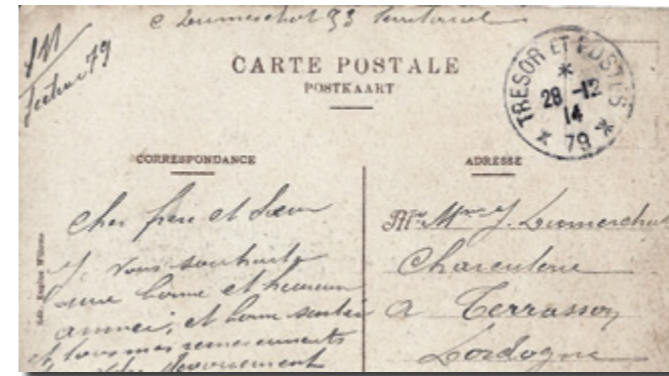 Secteur 79
CARTE POSTALE
POSTKAART
TRESOR ET POSTES
28 -12
14
79
CORRESPONDANCE
ADRESSE
Cher frère et Sœur
Je vous souhaite
une bonne et heureuse
année, et bonne santée
et tous mes remerciments
dévouement
Mr Mme J. Dumerchat
Charcuterie
a Terrasson
Dordogne